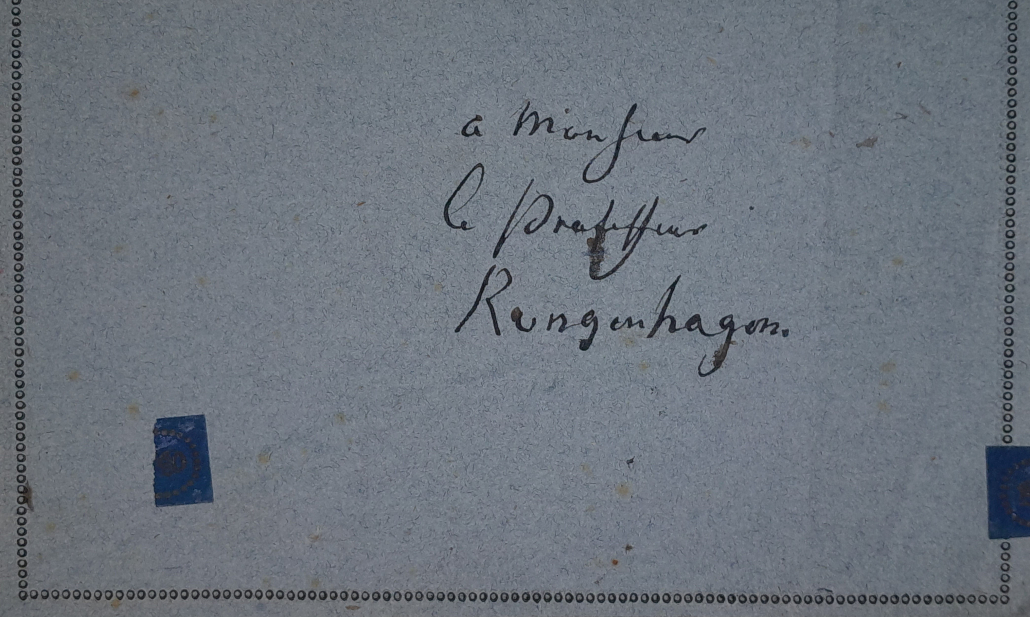 a Monsieur
le Professeur
Rungenhagen.